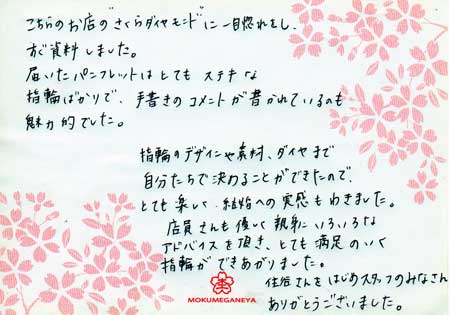 こちらのお店の"さくらダイヤモンド"に一目惚れをし、
すぐ資料しました。
届いたパンフレットはとても ステキな
指輪ばかりで、手書きのコメントが書かれているのも
魅力的でした。
指輪のデザインや素材、ダイヤまで
自分たちで決めることができたので、
とても楽しく 結婚への実感もわきました。
店員さんも優しく親身にいろいろな
アドバイスを頂き、とても満足のいく
指輪ができあがりました。
住谷さんをはじめスタッフのみなさん
ありがとうございました。
MOKUMEGANEYA